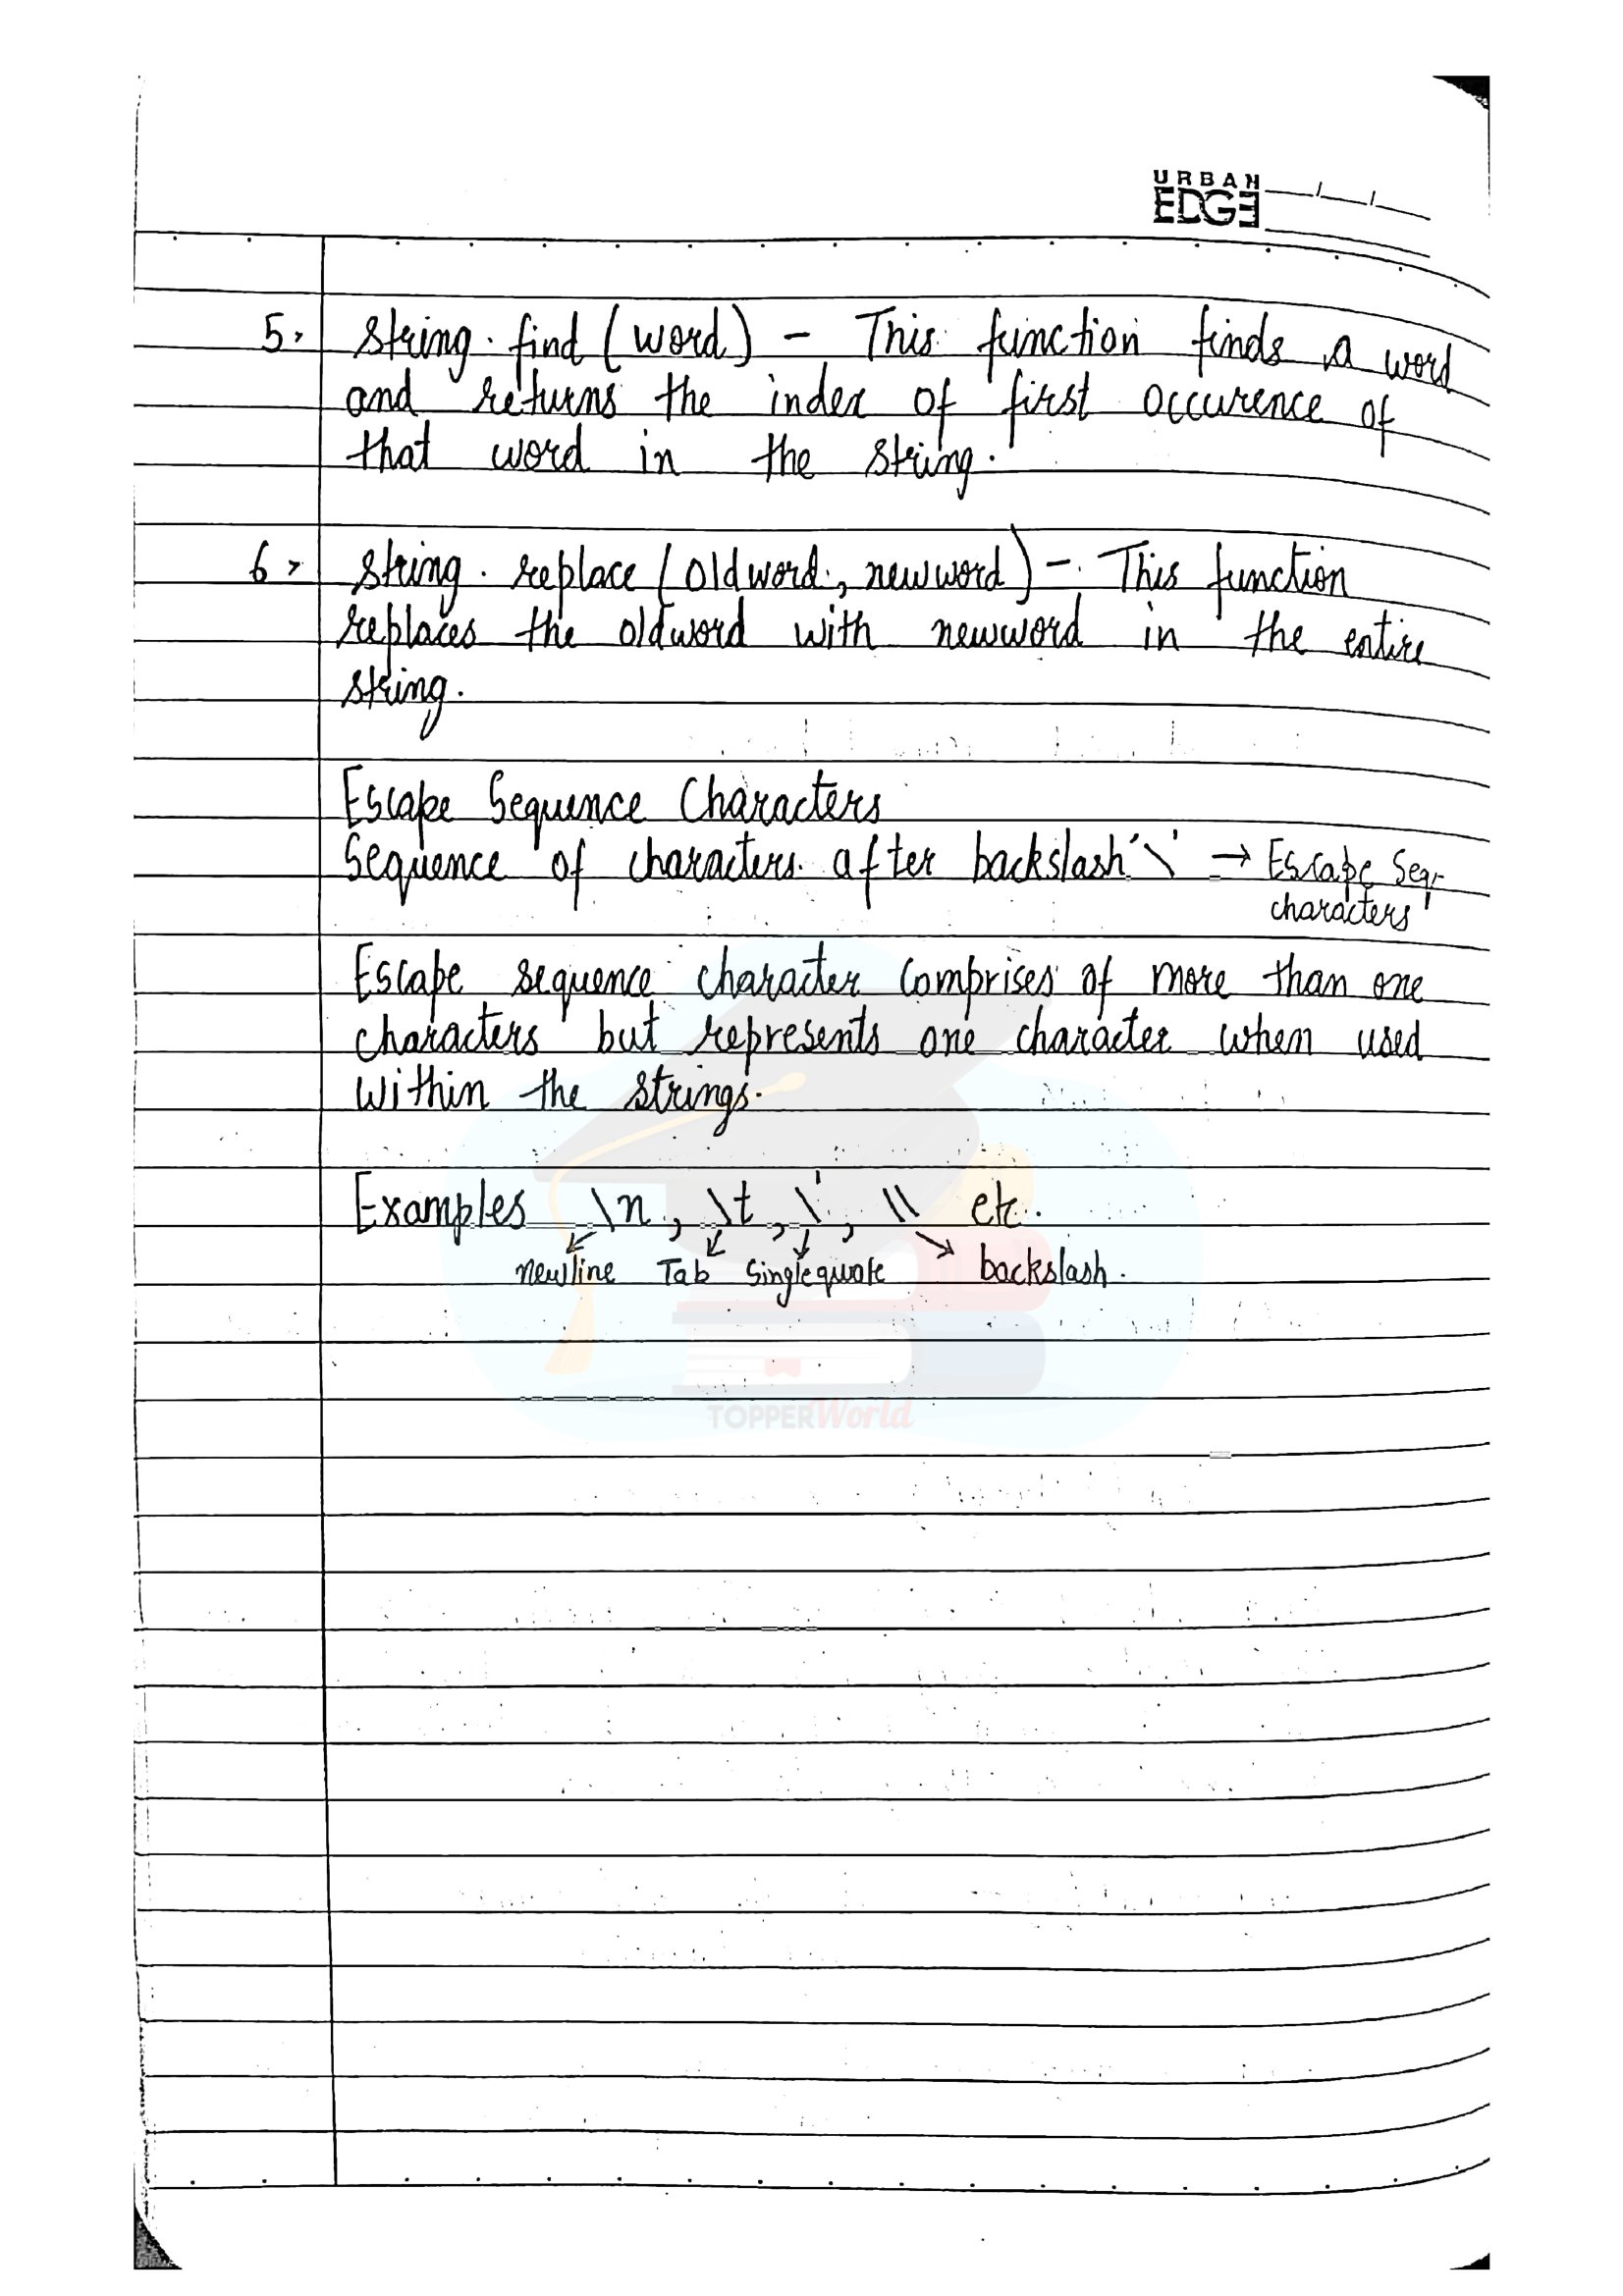 URBAN
EDGE
5. string.find(word) - This function finds a word
and returns the index of first occurence of
that word in the string.
6> string.replace(oldword, newword) - This function
replaces the oldword with newword in the entire
string.
Escape Sequence Characters
Sequence of characters after backslash '\' → Escape Seq.
characters
Escape sequence character comprises of more than one
characters but represents one character when used
within the strings.
Examples \n, \t, \', \\ etc.
newline Tab Singlequote backslash.
TOPPERWorld